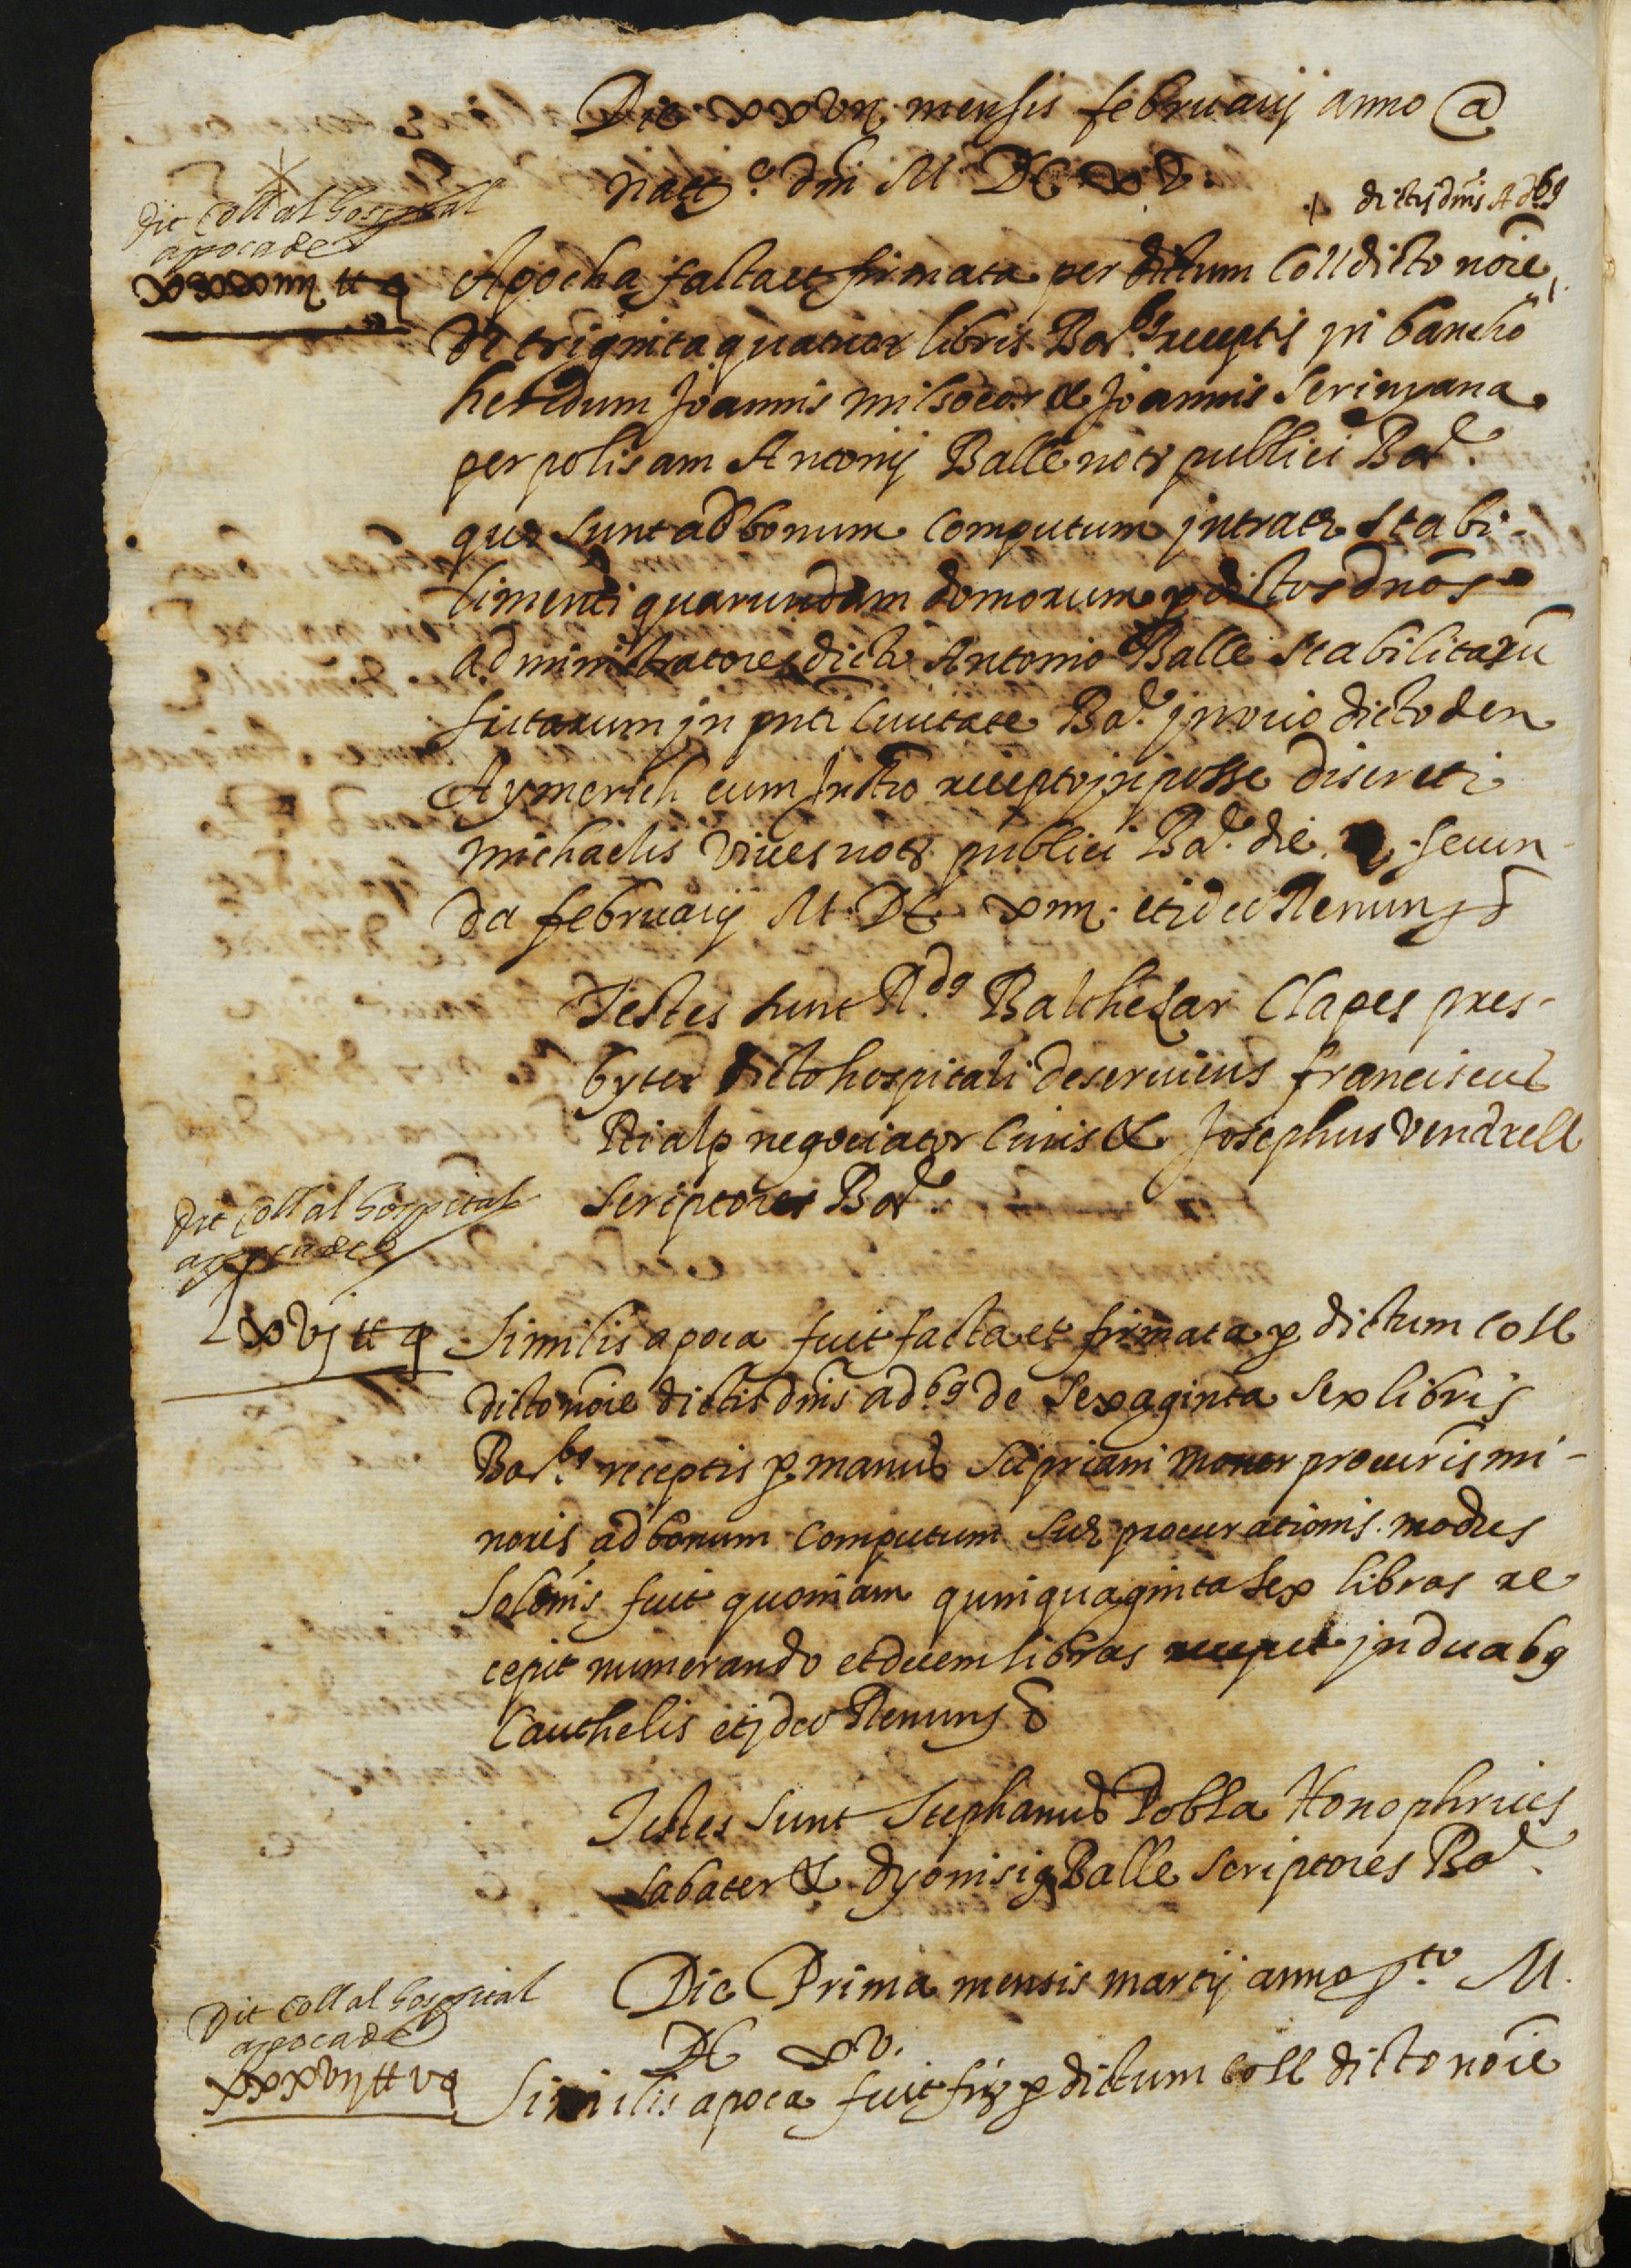 Die xxvij mensis februarij anno @
natte dni M DC xv.
dictis dnis Adbg
Dit Coll al hospital
apoca de
xxxiiij tt q
Apocha facta et firmata per dictum Coll dicto noie
de trigintaquatuor libris Bar. receptis in bancho
heredum Joannis milsocor & Joannis Serinyana
per polisam Antonij Balle notr publici Bar.
que sunt ad bonum Computum jntrate stabi-
limenti quarundam domorum p dictos dnos
administratores dicto Antonio Balle stabilitaru
sitarum jn pnti Civitate Bar. jn vico dicto den
Aymerich cum Instro recepto jn posse discreti
michaelis vives notr publici Bar. die secun-
da februarij M DC xiiij. et ideo Renung
Testes sunt Rdg Balthesar Clapes pres-
byter dicto hospitali deserviens franciscus
Rialp negociator Civis & Josephus vendrell
scriptores Bar.
Dit Coll al hospital
apoca de
Lxvj tt q
Similis apoca fuit facta et firmata p dictum Coll
dicto noie dictis dnis adbg de sexaginta sex libris
Bar. receptis p manus Scipriani moner procuris mi-
noris ad bonum Computum sue procurationis. modus
solonis fuit quoniam quinquaginta sex libras re
cepit numerando et decem libras recepit jn duabg
Cauthelis et jdeo Renung
Testes sunt Stephanus Pobla Honophrius
sabater & dyonisig Balle scriptores Bar.
Dit Coll al hospital
apoca de
xxxvij tt vq
Die Prima mensis martij anno pto M
DC xv.
Similis apoca fuit fir p dictum Coll dicto noie